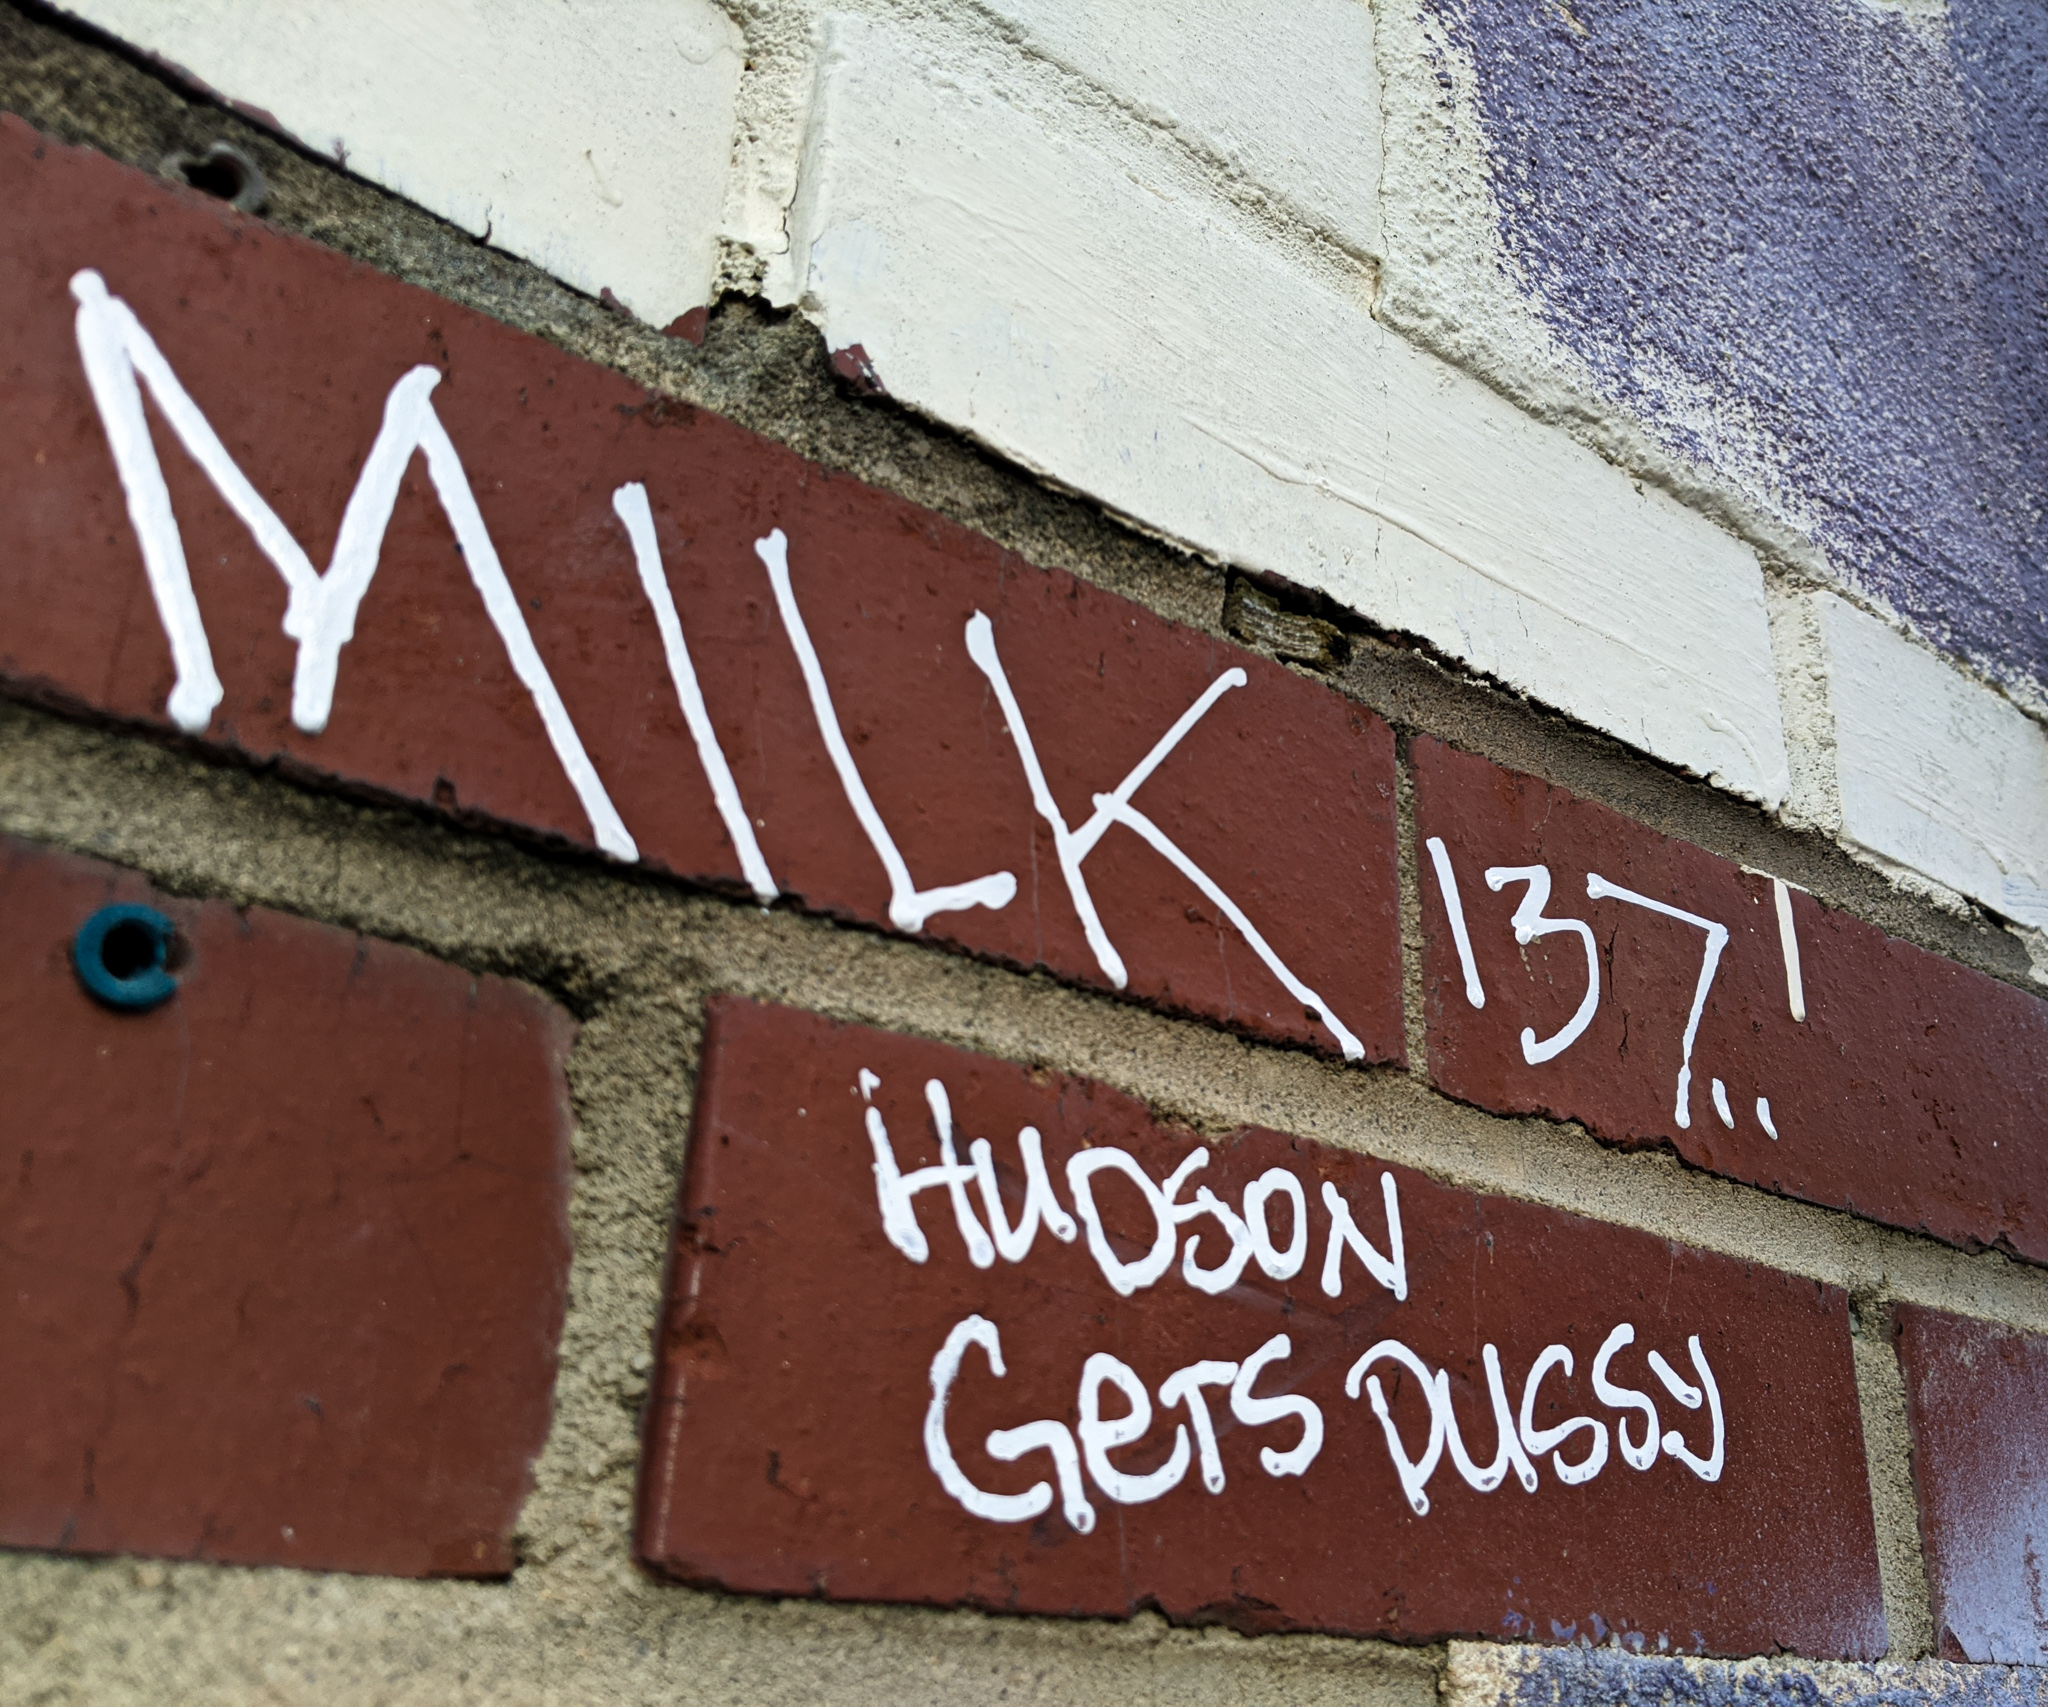 MILK 137..'
HUDSON
GeTS PUSSY